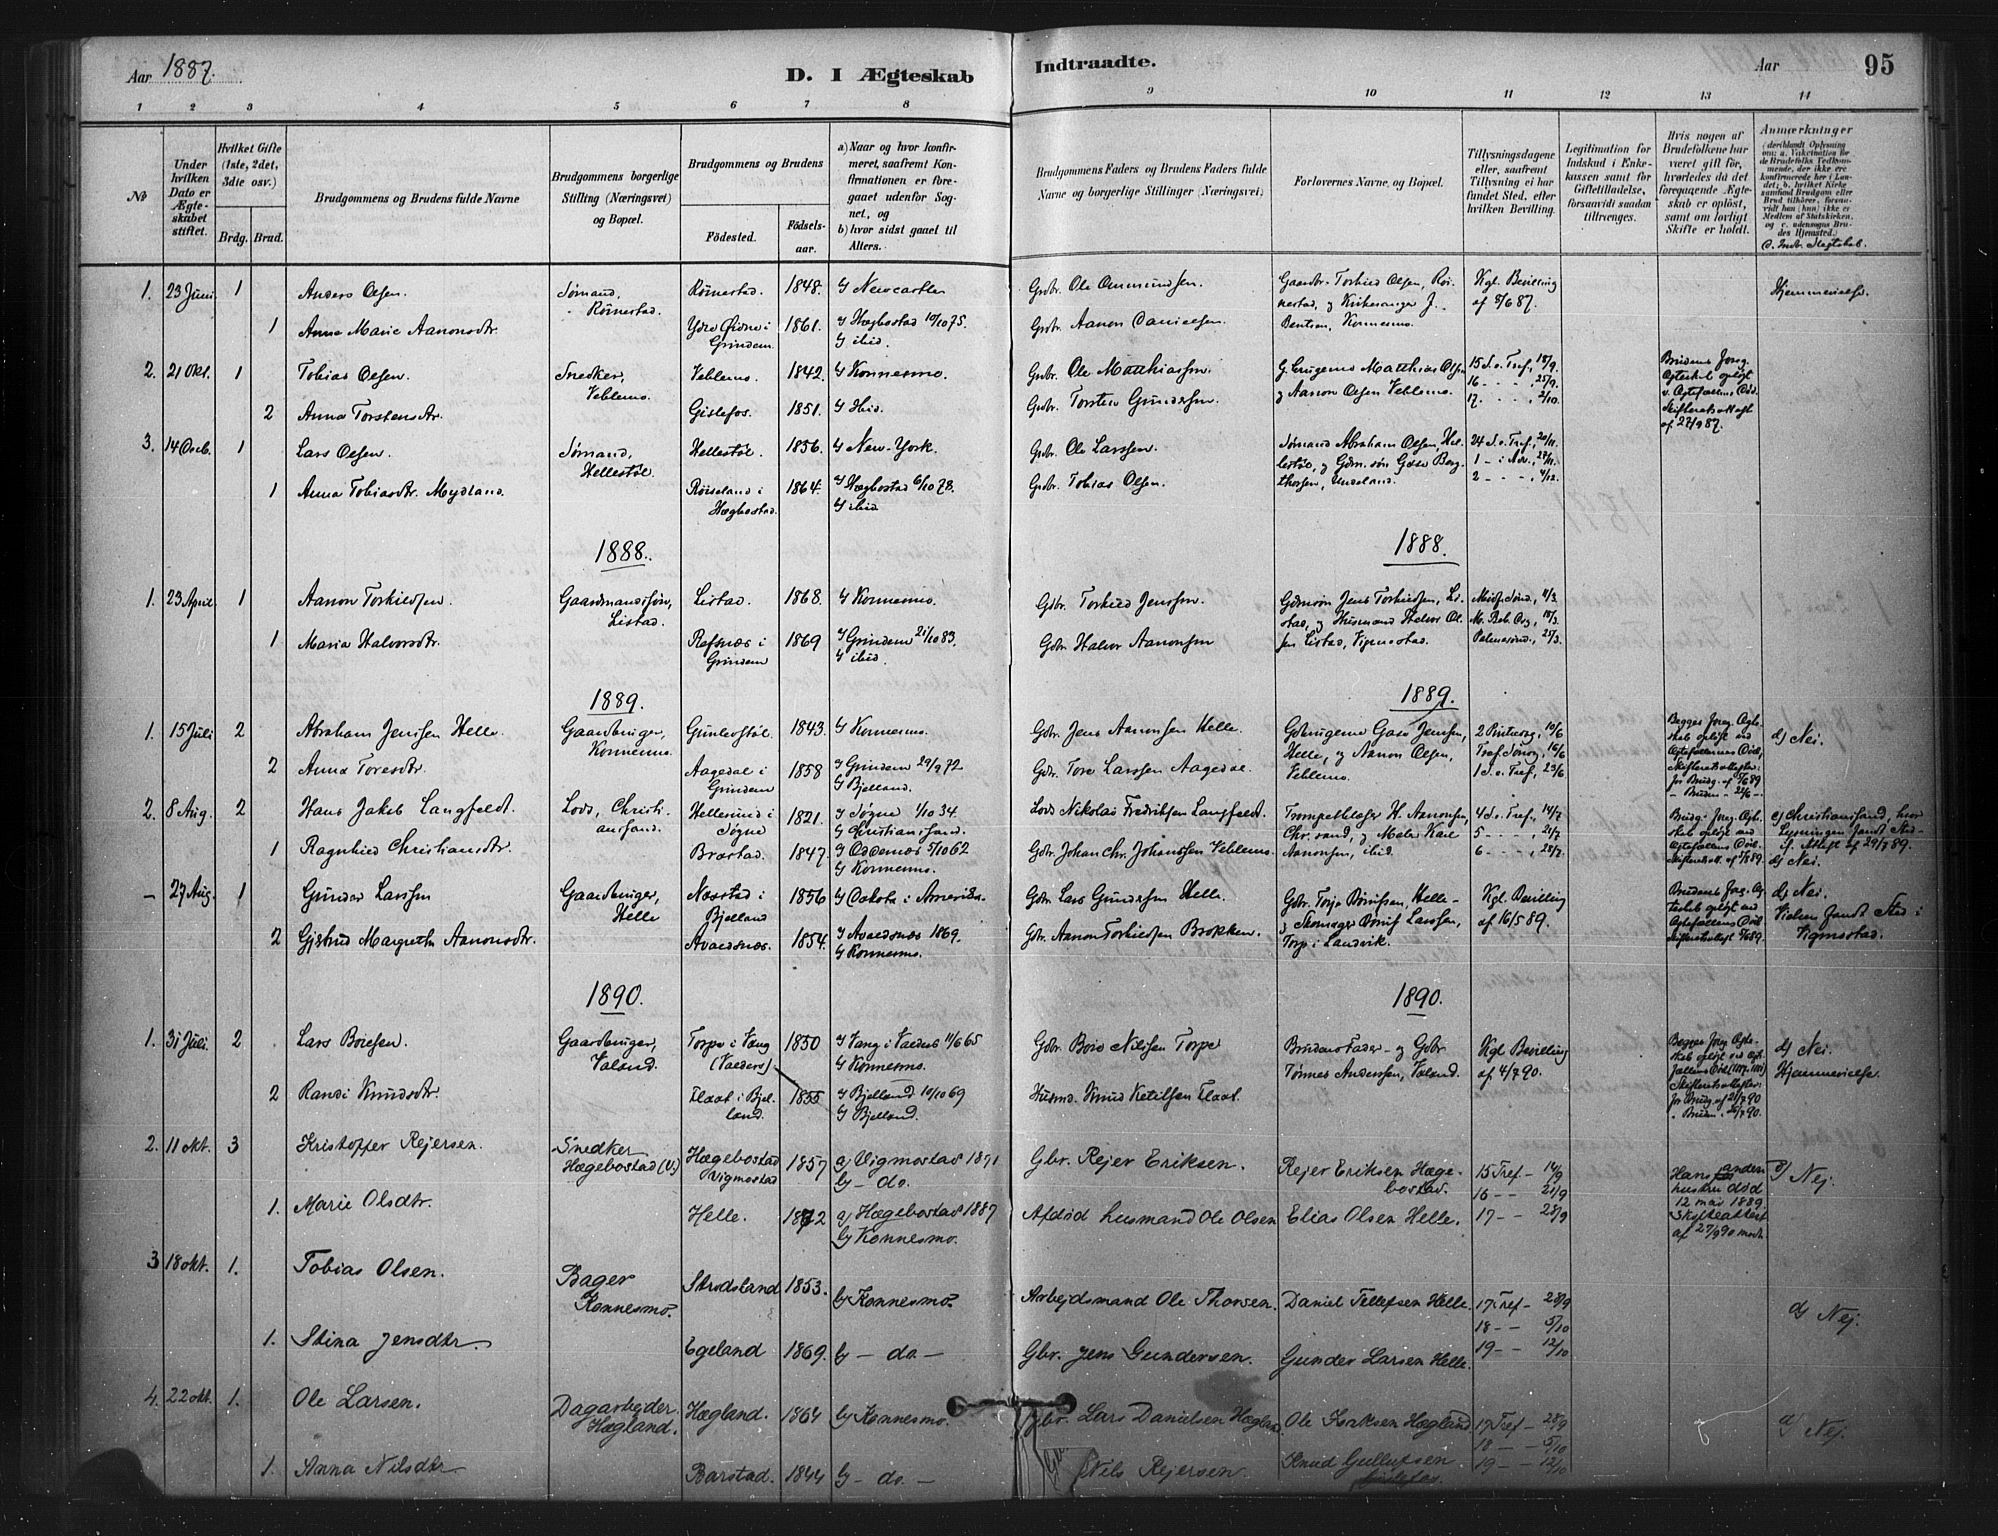 Aar 1887.
D. I Ægteskab
Indtraadte.
Aar
95
1 2 3 4 5 6 7 8
9 10 11 12 13 14
No
Under hvilken Dato er Ægteskabet stiftet.
Hvilket Gifte (1ste, 2det, 3die osv.)
Brdg. Brud.
Brudgommens og Brudens fulde Navne
Brudgommens borgerlige Stilling (Næringsvei) og Bopæl.
Brudgommens og Brudens
Fødested.
Fødselsaar.
a) Naar og hvor konfirmeret, saafremt Konfirmationen er foregaaet udenfor Sognet, og
b) hvor sidst gaaet til Alters.
Brudgommens Faders og Brudens Faders fulde Navne og borgerlige Stillinger (Næringsvei)
Forlovernes Navne, og Bopæl.
Tillysningsdagene eller, saafremt Tillysning ei har fundet Sted, efter hvilken Bevilling.
Legitimation for Indskud i Enkekassen samt for Giftetilladelse, forsaavidt saadan tiltrænges.
Hvis nogen af Brudefolkene har været gift før, hvorledes da det foregaaende Ægteskab er opløst, samt om lovligt Skifte er holdt.
Anmærkninger
1. 23 Juni 1 Anders Olsen. Sømand, Rømestad. Rømestad. 1848. b) Newcastle Grdbr. Ole Ommundsen Gaardbr. Torkild Olsen, Rømestad, og Kirkesanger J. Bentsen, Konnesmo. Kgl. Bevilling af 8/6 87. Hjemmevielse.
1 Anna Marie Aanonsdtr. Ydre Øidne i Grindem 1861. a) Hægbostad 10/10 75. b) ibid. Grdbr. Aanon Danielsen
2. 21 Okt. 1 Tobias Olsen. Snedker, Veblemo. Veblemo. 1842. b) Konnesmo. Grdbr. Ole Matthiassen. Matthias Olsen og Aanon Olsen Veblemo. 15 S. e. Tref., 18/9. 16 - - - , 25/9. 17. - - - , 2/10. Brudens foreg. Egteskab opløst v. Egtefællens Død. Skifteretsattest af 27/9 87.
2 Anna Torstensdtr. Gislefos. 1851. b) Ibid. Grdbr. Torsten Gundersen.
3. 14 Decb. 1 Lars Olsen. Sømand, Hellestøl. Hellestøl. 1856. b) New-York. Grdbr. Ole Larssen. Sømand Abraham Olsen, Hellestøl, og 24 S. e. Tref., 20/11. 1 - i Adv., 27/11. 2 - - - , 4/12.
1 Anna Tobiasdtr. Mydland. Røiseland i Hægbostad. 1864. a) Hægbostad 6/10 78. b) ibid Grdbr. Tobias Olsen.
1888. 1888.
1. 23 April 1 Aanon Torkildsen. Gaardmandssøn, Listad. Listad. 1868. b) Konnesmo. Gdbr. Torkild Jenssen. Gdmsøn Jens Torkildsen, Listad, og Husmand Halvor Olsen Listad, Vigmostad. Midf. Sønd., 11/3. M. Beb. Dag, 18/3. Palmesønd., 25/3.
1 Maria Halvorsdtr. Refsnæs i Grindem 1869 a) Grindem 21/10 83. b) ibid. Gdbr. Halvor Aanonsen
1889. 1889.
1. 15 Juli 2 Abraham Jenssen Helle. Gaardbruger, Konnesmo. Gunleøstøl. 1843. b) Konnesmo. Gdbr. Jens Aanonsen Helle. Gdmugerne Gase Jenssen, Helle, og Aanon Olsen, Veblemo. 2 Pintsedag, 10/6 Tref. Søndag, 16/6 1 S. e. Tref., 23/6 Begges foreg. Egteskab opløst ved Egtefællernes Død. d) Nei.
2 Anna Toresdtr. Aagedal i Grindem 1858 a) Grindem 29/9 72 b) Bjelland. Gdbr. Tore Larssen Aagedal.
2. 8 Aug. 2 Hans Jakob Langfeldt. Lods, Christiansand. Hellesund i Søgne 1821. a) Søgne 1/10 34. b) Christiansand. Lods Nikolai Fredriksen Langfeldt. Trompetblæser H. Aanonsen, Chr.sand, og Maler Karl Aanonsen, ibid. 4 S. e. Tref., 14/7 5 - - 21/7 6 - - 28/7 c) Christiansand, hvor Lysningen fandt Sted if. Attest af 29/7 89. d) Nei.
1 Ragnhild Christiansdtr. Brastad. 1847. a) Oddernes 5/10 62 b) Konnesmo. Gdbr. Johan Chr. Johanssen Veblemo.
- 27 Aug. 1 Gunder Larssen Gaardbruger, Helle Næsstad i Bjelland 1856 b) Dakota i Amerika. Gdbr. Lars Gundersen Helle. Gdbr. Terje Brinildsen, Helle - og Skomager Larssen, Torp i Landvik. Kgl. Bevilling af 16/5 89. d) Nei. Vielsen fandt Sted i Vigmostad.
2 Gjertrud Margrethe Aanonsdtr. Avaldsnæs. 1854. a) Avaldsnæs 1869. b) Konnesmo. Gdbr. Aanon Torkildsen Brokken.
1890. 1890.
1. 31 Juli. 2 Lars Boiesen. Gaardbruger, Valand. Torpe i Vang (Valders) 1850 a) Vang i Valders 11/6 65 b) Konnesmo. Gdbr. Boie Nilssen Torpe Brudens Fader - og Gdbr. Tønnes Anderssen, Valand. Kgl Bevilling af 4/7 90. d) Nei. Hjemmevielse.
2 Randi Knudsdtr. Flaat i Bjelland. 1855 a) Bjelland 10/10 69 b) Bjelland. Husmd. Knud Ketilsen Flaat.
2. 11 okt. 3 Kristoffer Rejersen. Snedker Hægebostad (V.) Hægebostad Vigmostad 1857 a) Vigmostad 1871 b) - do. Gbr. Rejer Eriksen. Rejer Eriksen Hægebostad. 15 Tref - 14/9 16 - - 21/9 17 - - 28/9 Hans anden hustru død 12 mai 1889 Skifteattest af 27/9 90 d) Nej.
1. Marie Olsdtr. Helle. 1872 a) Hægebostad 1887 b) Konnesmo. Afdød husmand Ole Olsen Elias Olsen Helle.
3 18 okt. 1. Tobias Olsen. Bager Konnesmo. Strodsland 1853. b) Konnesmo. Arbejdsmand Ole Thorsen. Daniel Tellefsen Helle. 17 Tref - 28/9 18 - - 5/10 19 - - 12/10 d) Nej.
1. Stina Jensdtr. Egeland 1869. b) - do. - Gbr. Jens Gundersen. Gunder Larsen Helle.
4. 22 okt. 1. Ole Larsen. Dagarbejder. Hægland. Hægland. 1864 b) Konnesmo. Gbr. Lars Danielsen Hægland Ole Isaksen Hægland 17 Tref - 28/9 18 - - 5/10 19 - - 12/10 d) Nej.
1. Anna Nilsdtr. Barstad. 1844 b) - do. - Nils Rejersen Knud Gullufsen